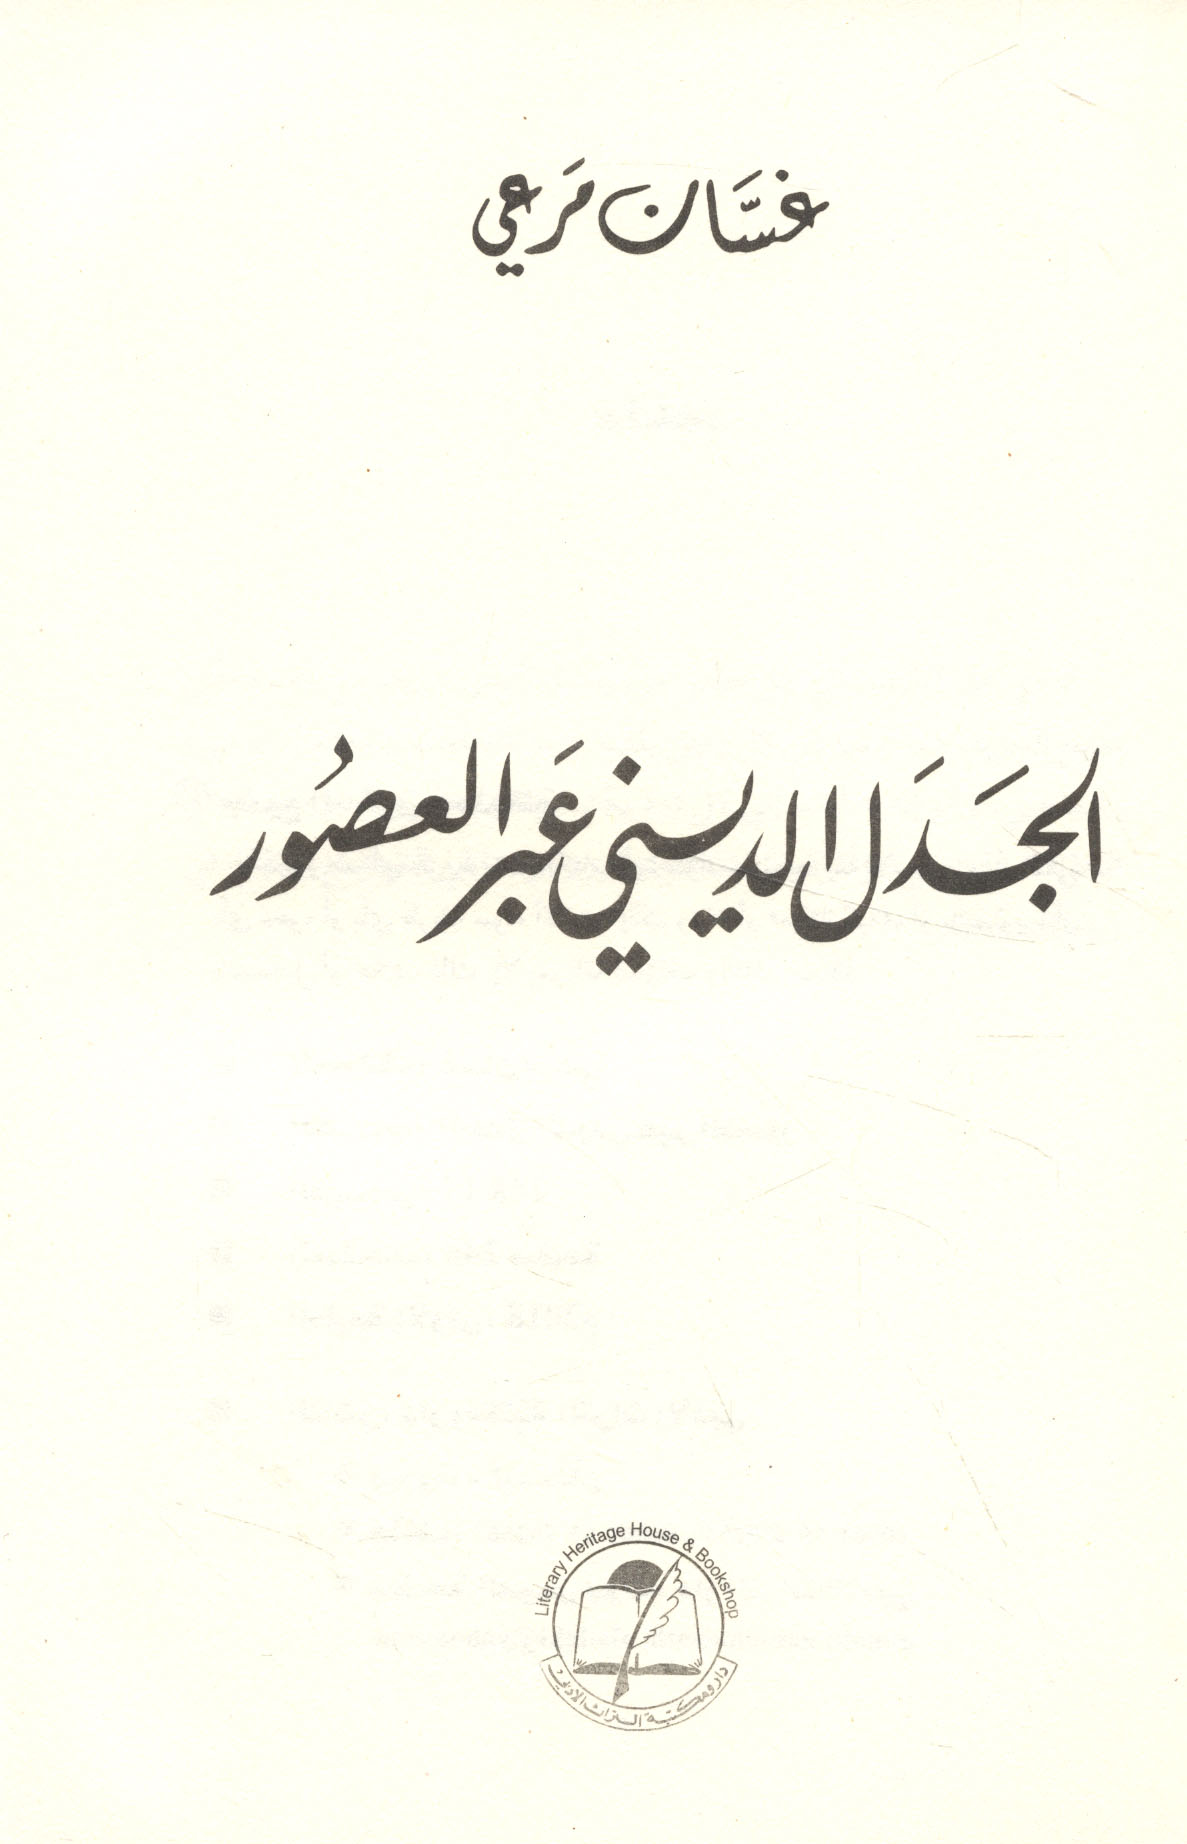 غسَّان مَرعي
الجَدَل الديني عَبر العصُور
Literary Heritage House & Bookshop
دار ومكتبة التراث الأدبي